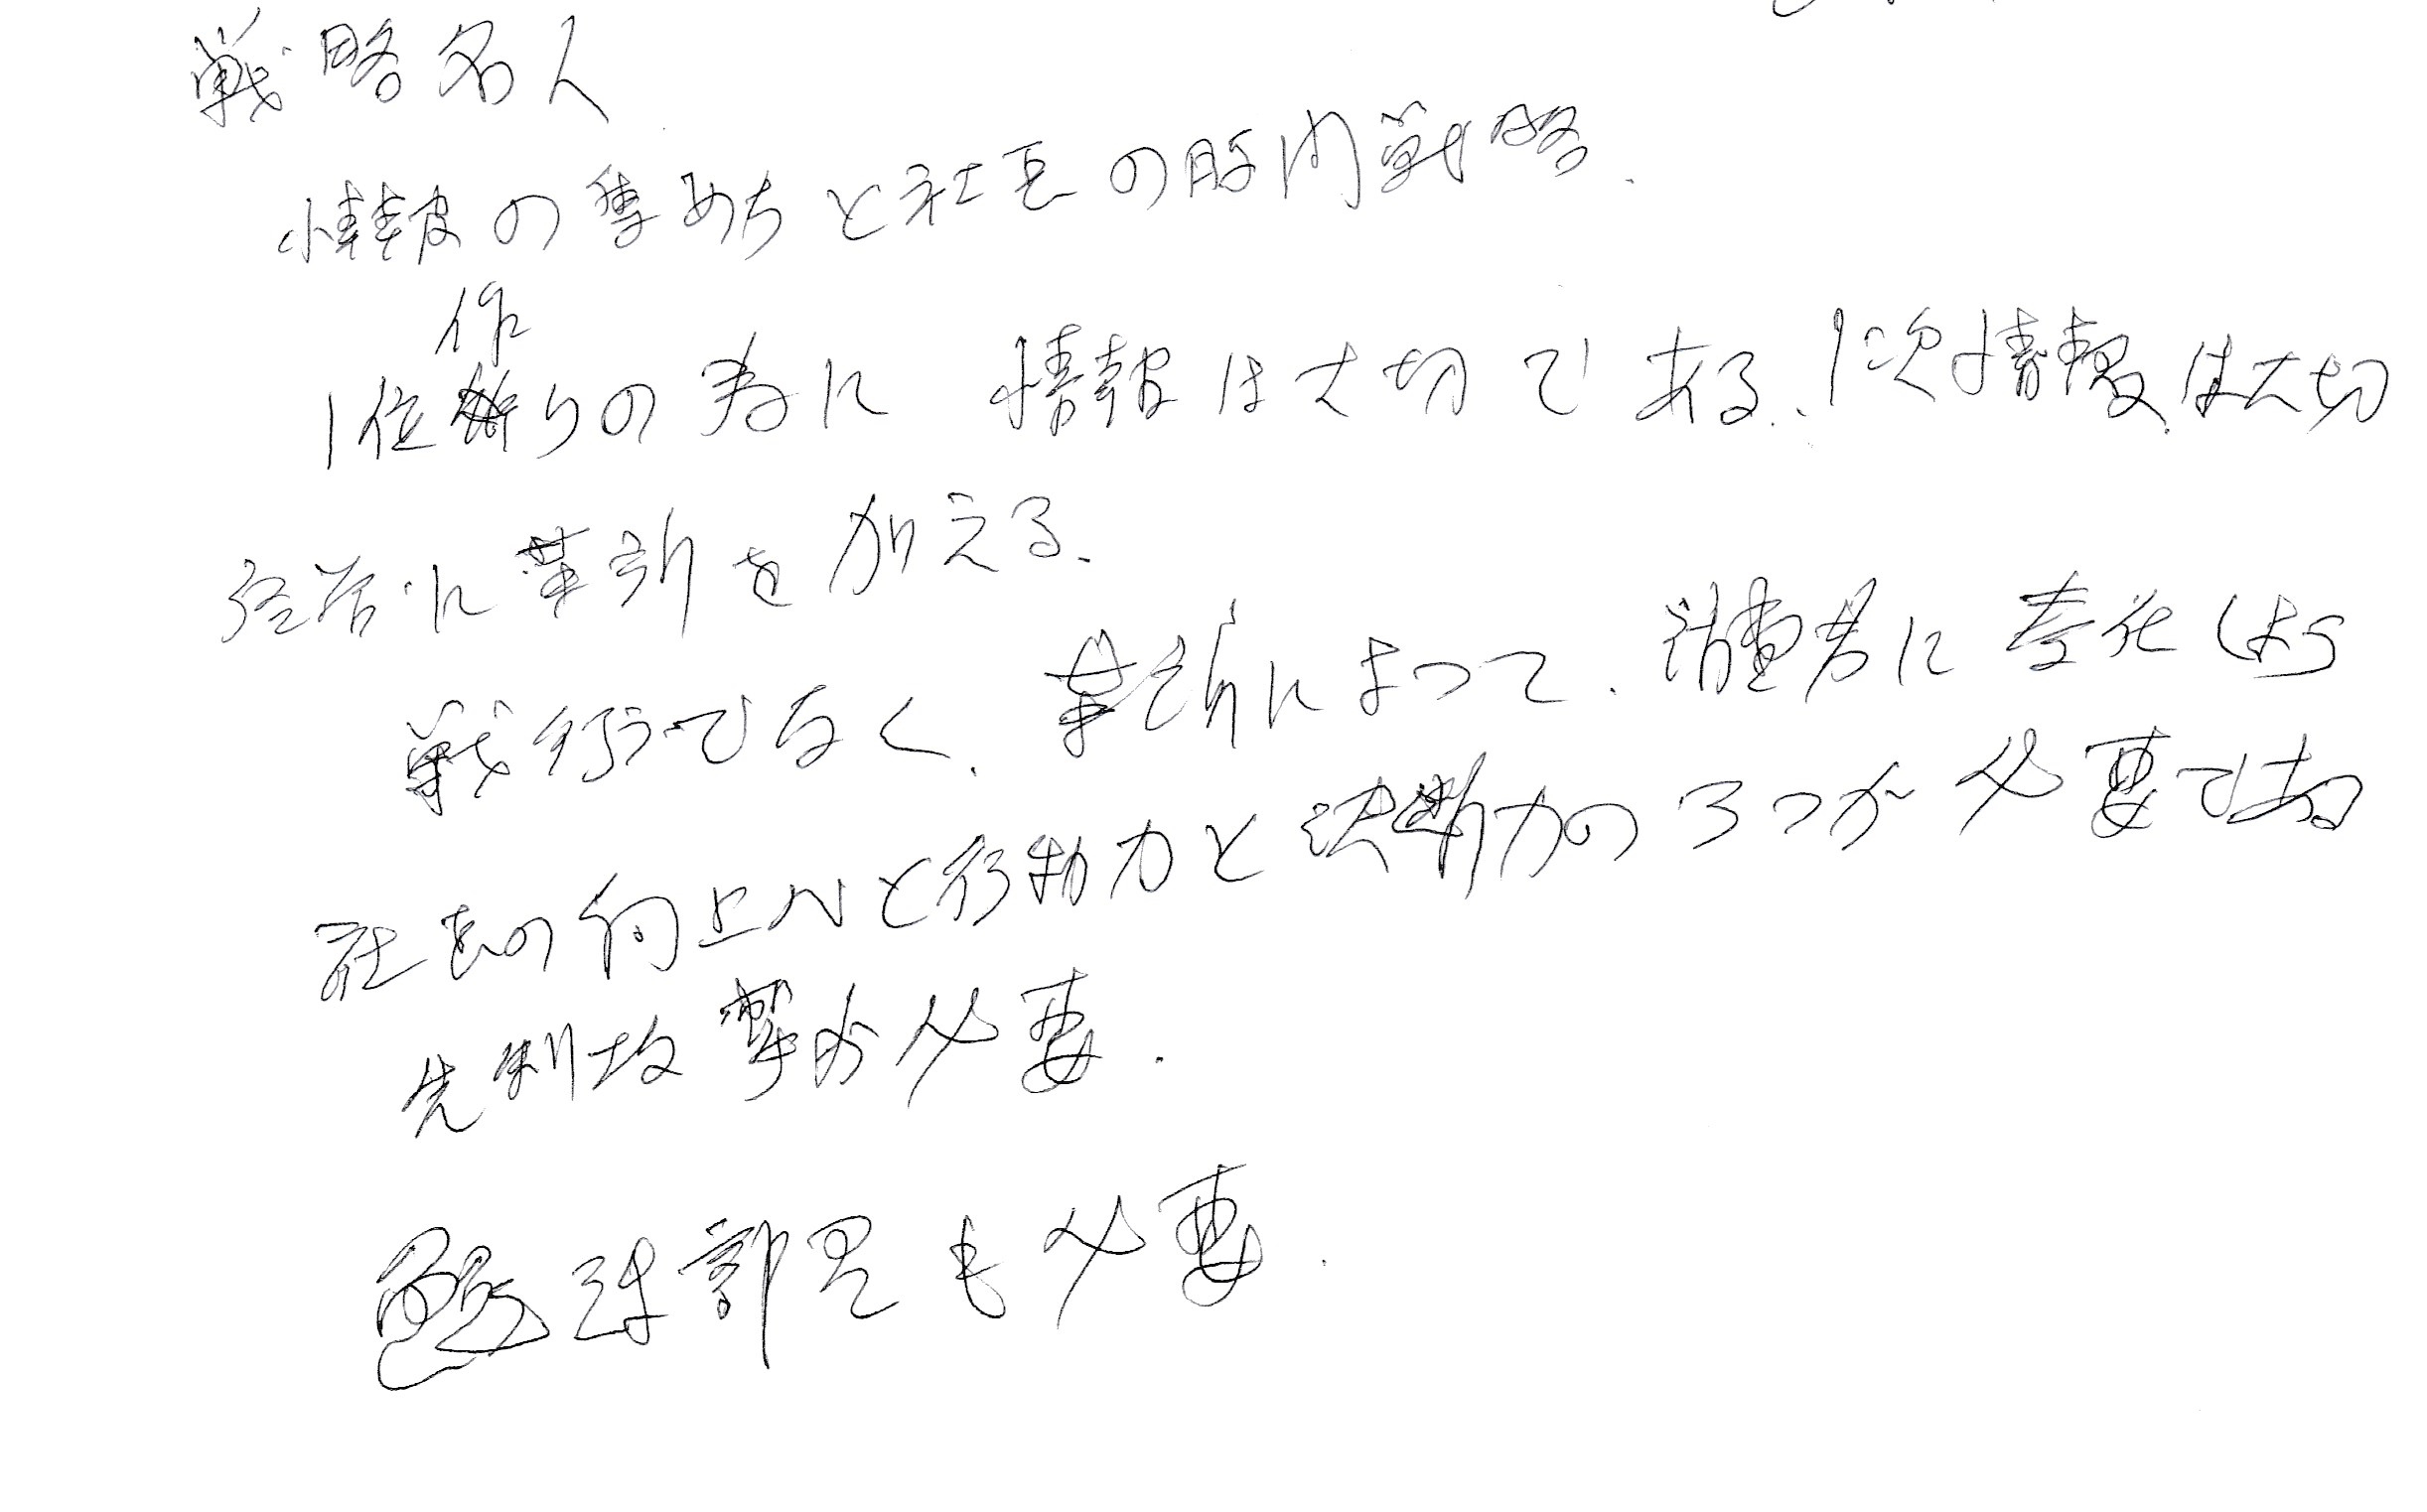 戦略名人
情報の集め方と社長の時間戦略.
作
1位りの為に 情報は大切である. 1次情報は大切
経営に革新を加える.
戦行でなく. 革新によって. 消費者に変化しよう
社長の向上心と行動力と決断力の3つが必要である
先制攻撃が必要.
部品も必要.